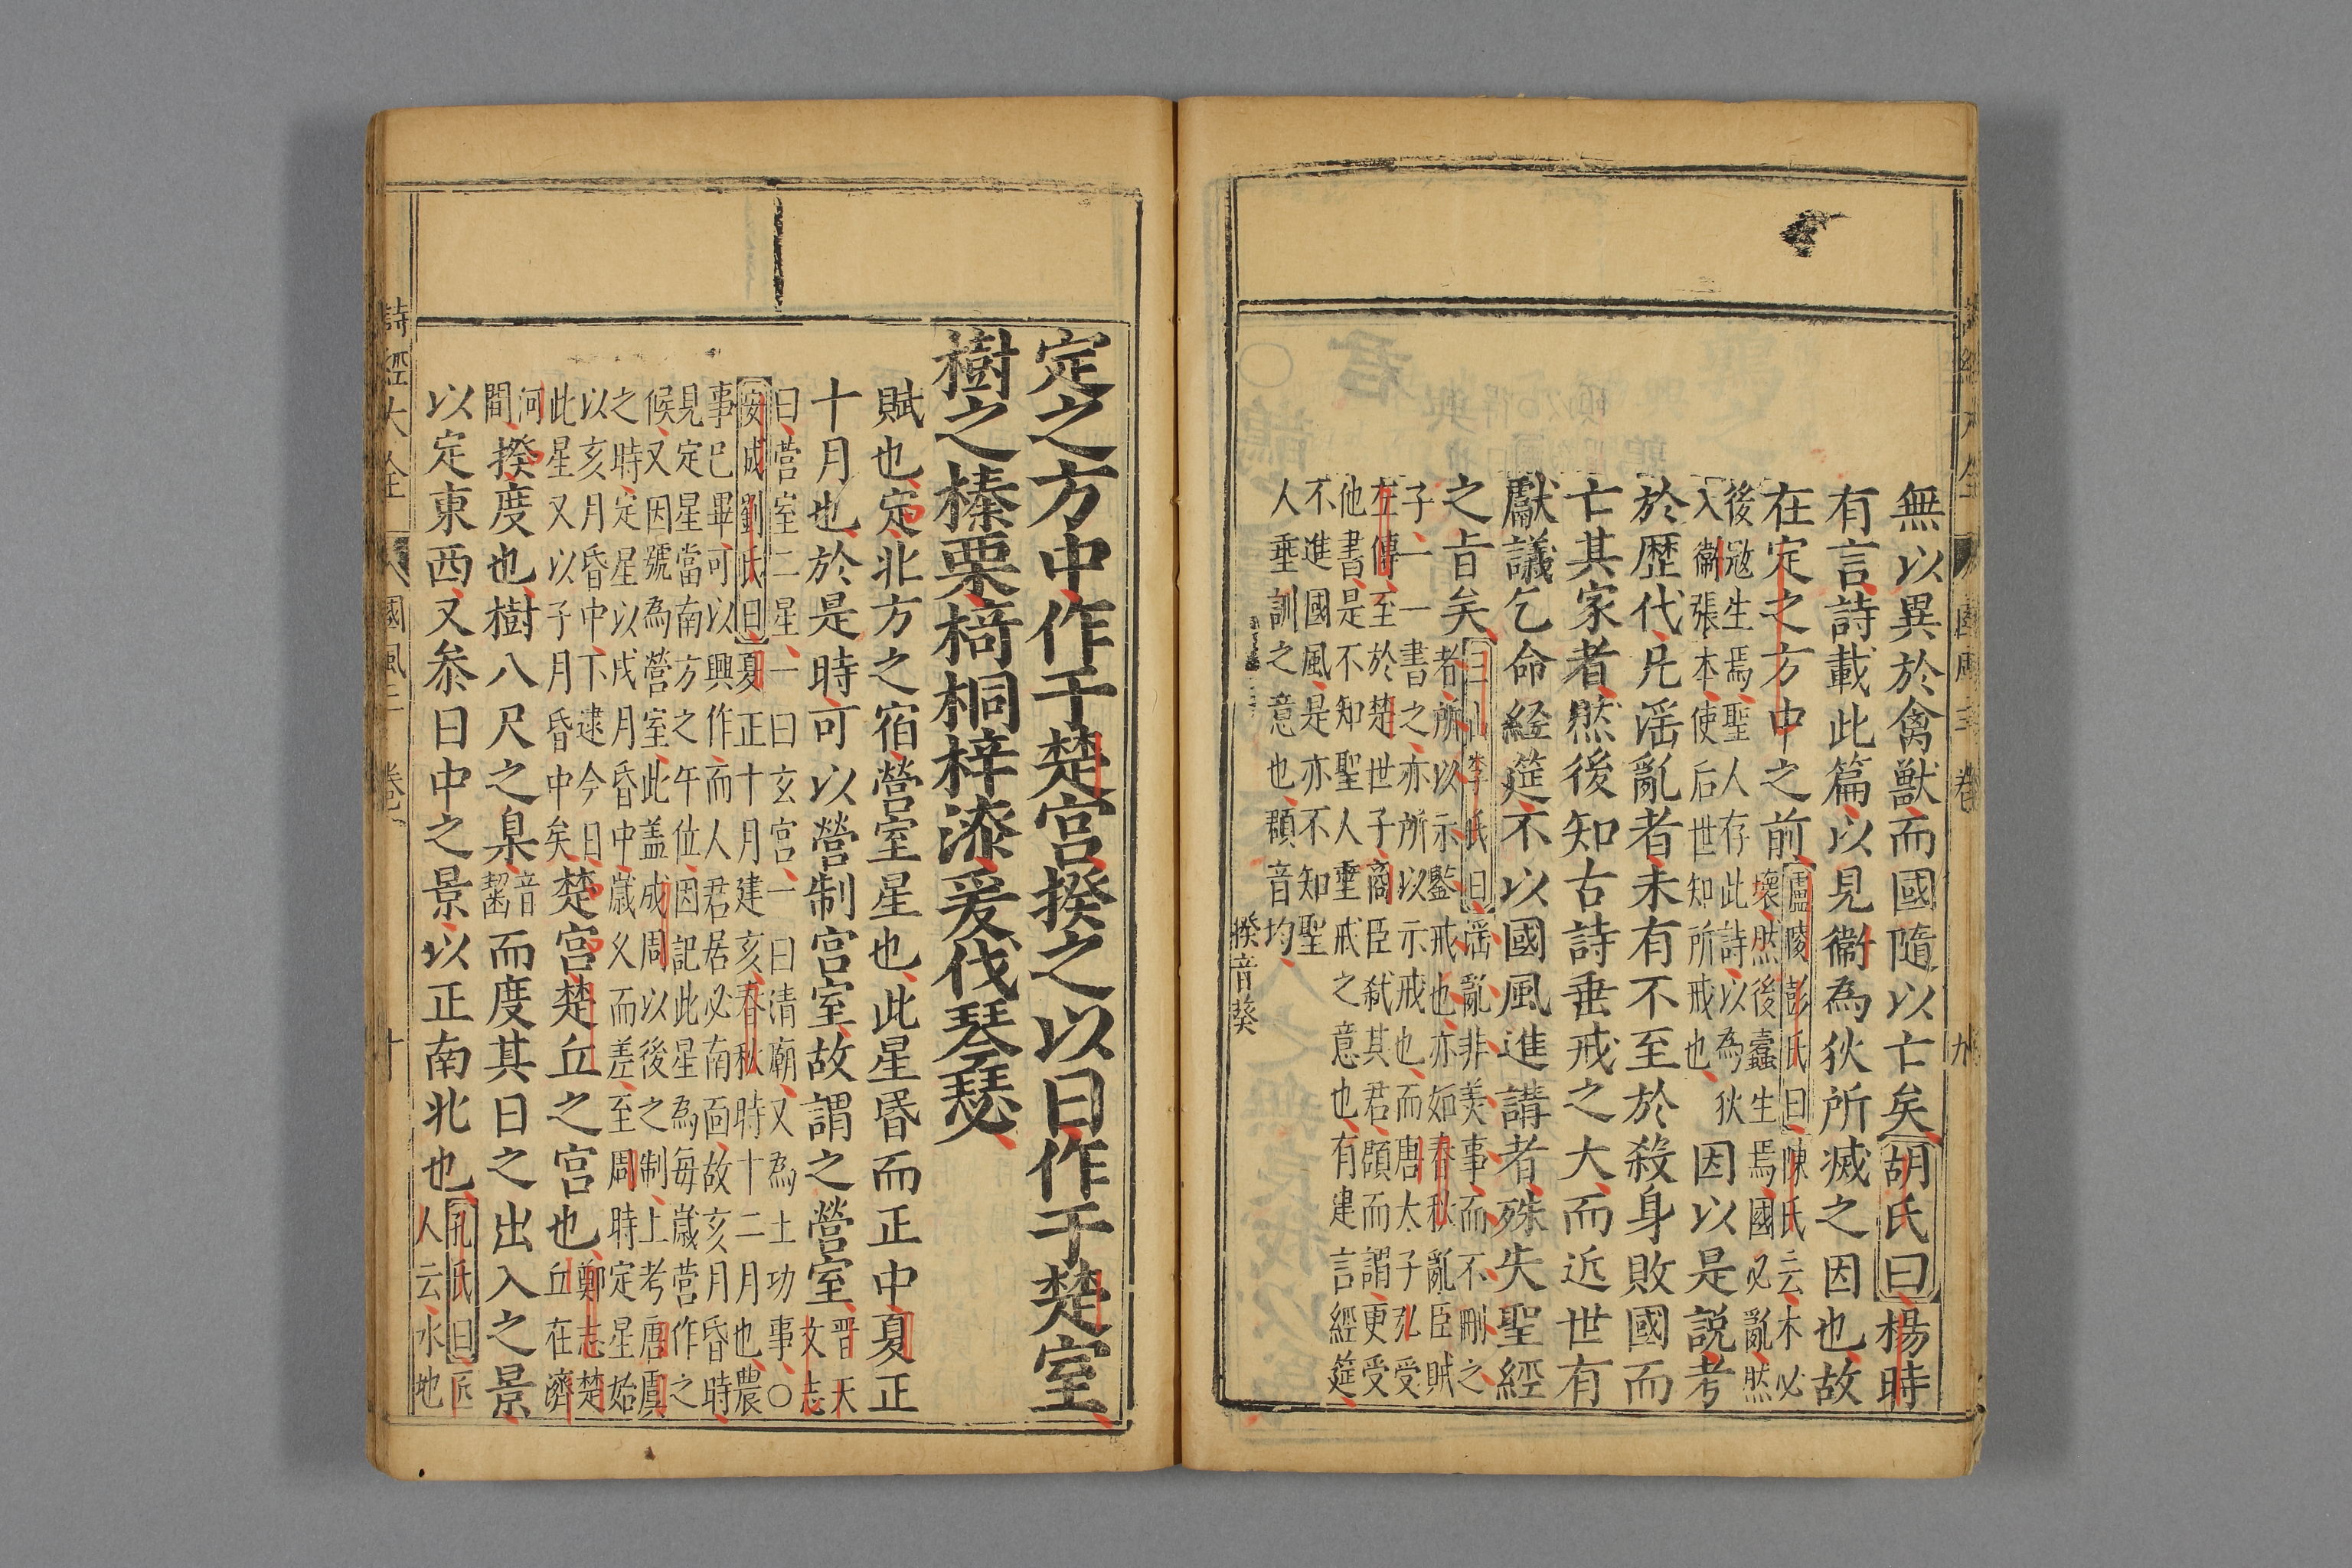 無以異於禽獸而國隨以亡矣胡氏曰楊時
有言詩載此篇以見衞為狄所滅之因也故
在定之方中之前盧陵彭氏曰陳氏云木必
壞然後蠹生焉國必亂然
後冦生焉聖人存此詩以為狄
入衞張本使后世知所戒也
因以是説考
於歷代凡滛亂者未有不至於殺身敗國而
亡其家者然後知古詩垂戒之大而近世有
獻議乞命経筵不以國風進講者殊失聖經
之㫖矣曰山李氏曰滛亂非美事而不刪之
者所以示鍳戒也亦如春秋亂臣賊
子一一書之亦所以示戒也而唐太子弘受
左傳至於楚世子商臣弑其君頵而謂更受
他書是不知聖人垂戒之意也有建言經筵
不進國風是亦不知聖
人垂訓之意也頵音均
揆音葵
定之方中作于楚宮揆之以日作于楚室
樹之榛栗椅桐梓漆爰伐琴瑟
賦也定北方之宿營室星也此星昏而正中夏正
十月也於是時可以營制宮室故謂之營室晋天
文志
曰營室二星一曰玄宮一曰清廟又為土功事〇
安成劉氏曰夏正十月建亥春秋時十二月也農
事已畢可以興作而人君居必南面故亥月昏時
見定星當南方之午位因記此星為每歲營作之
候又因號為營室此盖成周以後之制上考唐虞
之時定星以戌月昏中歲久而差至周時定星始
以亥月昏中下逮今日
此星又以子月昏中矣
楚宮楚丘之宮也鄭志楚
丘在濟
河
間
揆度也樹八尺之臬音
齧
而度其日之出入之景
以定東西又叅日中之景以正南北也孔氏曰匠
人云水地
詩經大全 國風二 卷 十